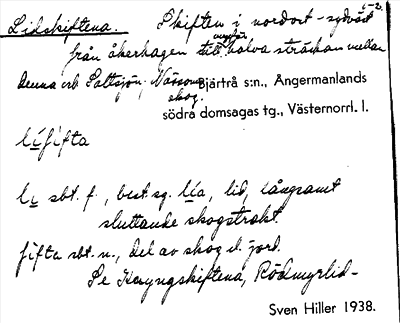 Lidskiftena. Skiften i nordost-sydväst
från åkerhagen till ungefär halva sträckan mellan
denna och Saltsjön, Nässom
skog.
Bjärtrå s:n., Ångermanlands
södra domsagas tg., Västernorrl. l.
sbt. f., best. sg. lia, lid, långsamt
sluttande skogstrakt.
sbt. n., del av skog el. jord.
Se Kyngskiftena, Rödmyrlid-
Sven Hiller 1938.